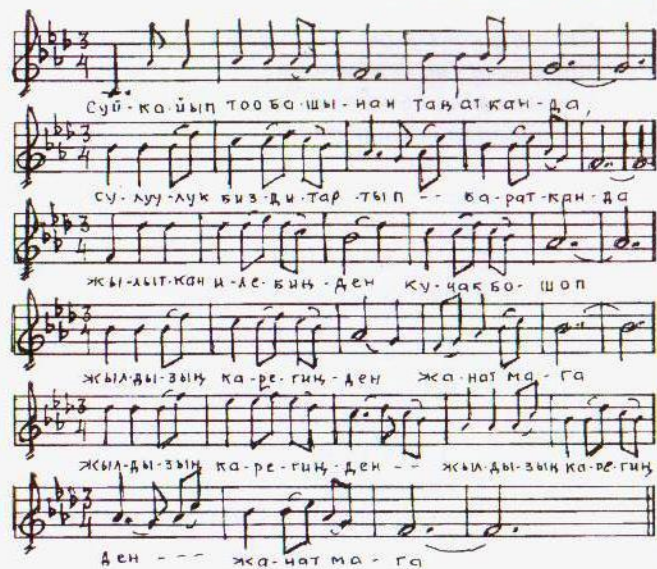 Суй-ка-йып тоо ба-шы-нан таң ат-кан-да,
су-луу-лук биз-ди-тар-тып -- ба-рат-кан-да
жы-лыт-кан и-ле-биң-ден ку-чак бо-шоп
жыл-ды-зың ка-ре-гиң-ден жа-нат ма-га
жыл-ды-зың ка-ре-гиң-ден -- жыл-ды-зың ка-ре-гиң
ден --- жа-нат ма-га